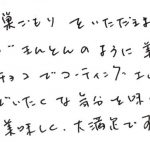 巣ごもり をいただきま
ぎまんとんのように 黄
チョコでコーティングエ
ぜいたくな気分を味
美味しく、大満足です